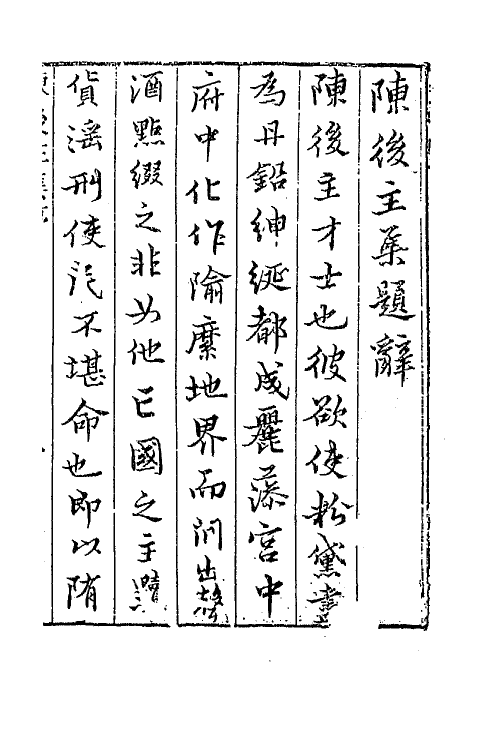 陳後主集題辭
陳後主才士也彼欲使粉黛盡
為丹鉛紳綖都成麗藻宮中
府中化作隃糜地界而間出聲
酒點綴之非如他亡國之主黷
貨滛刑使民不堪命也即以隋